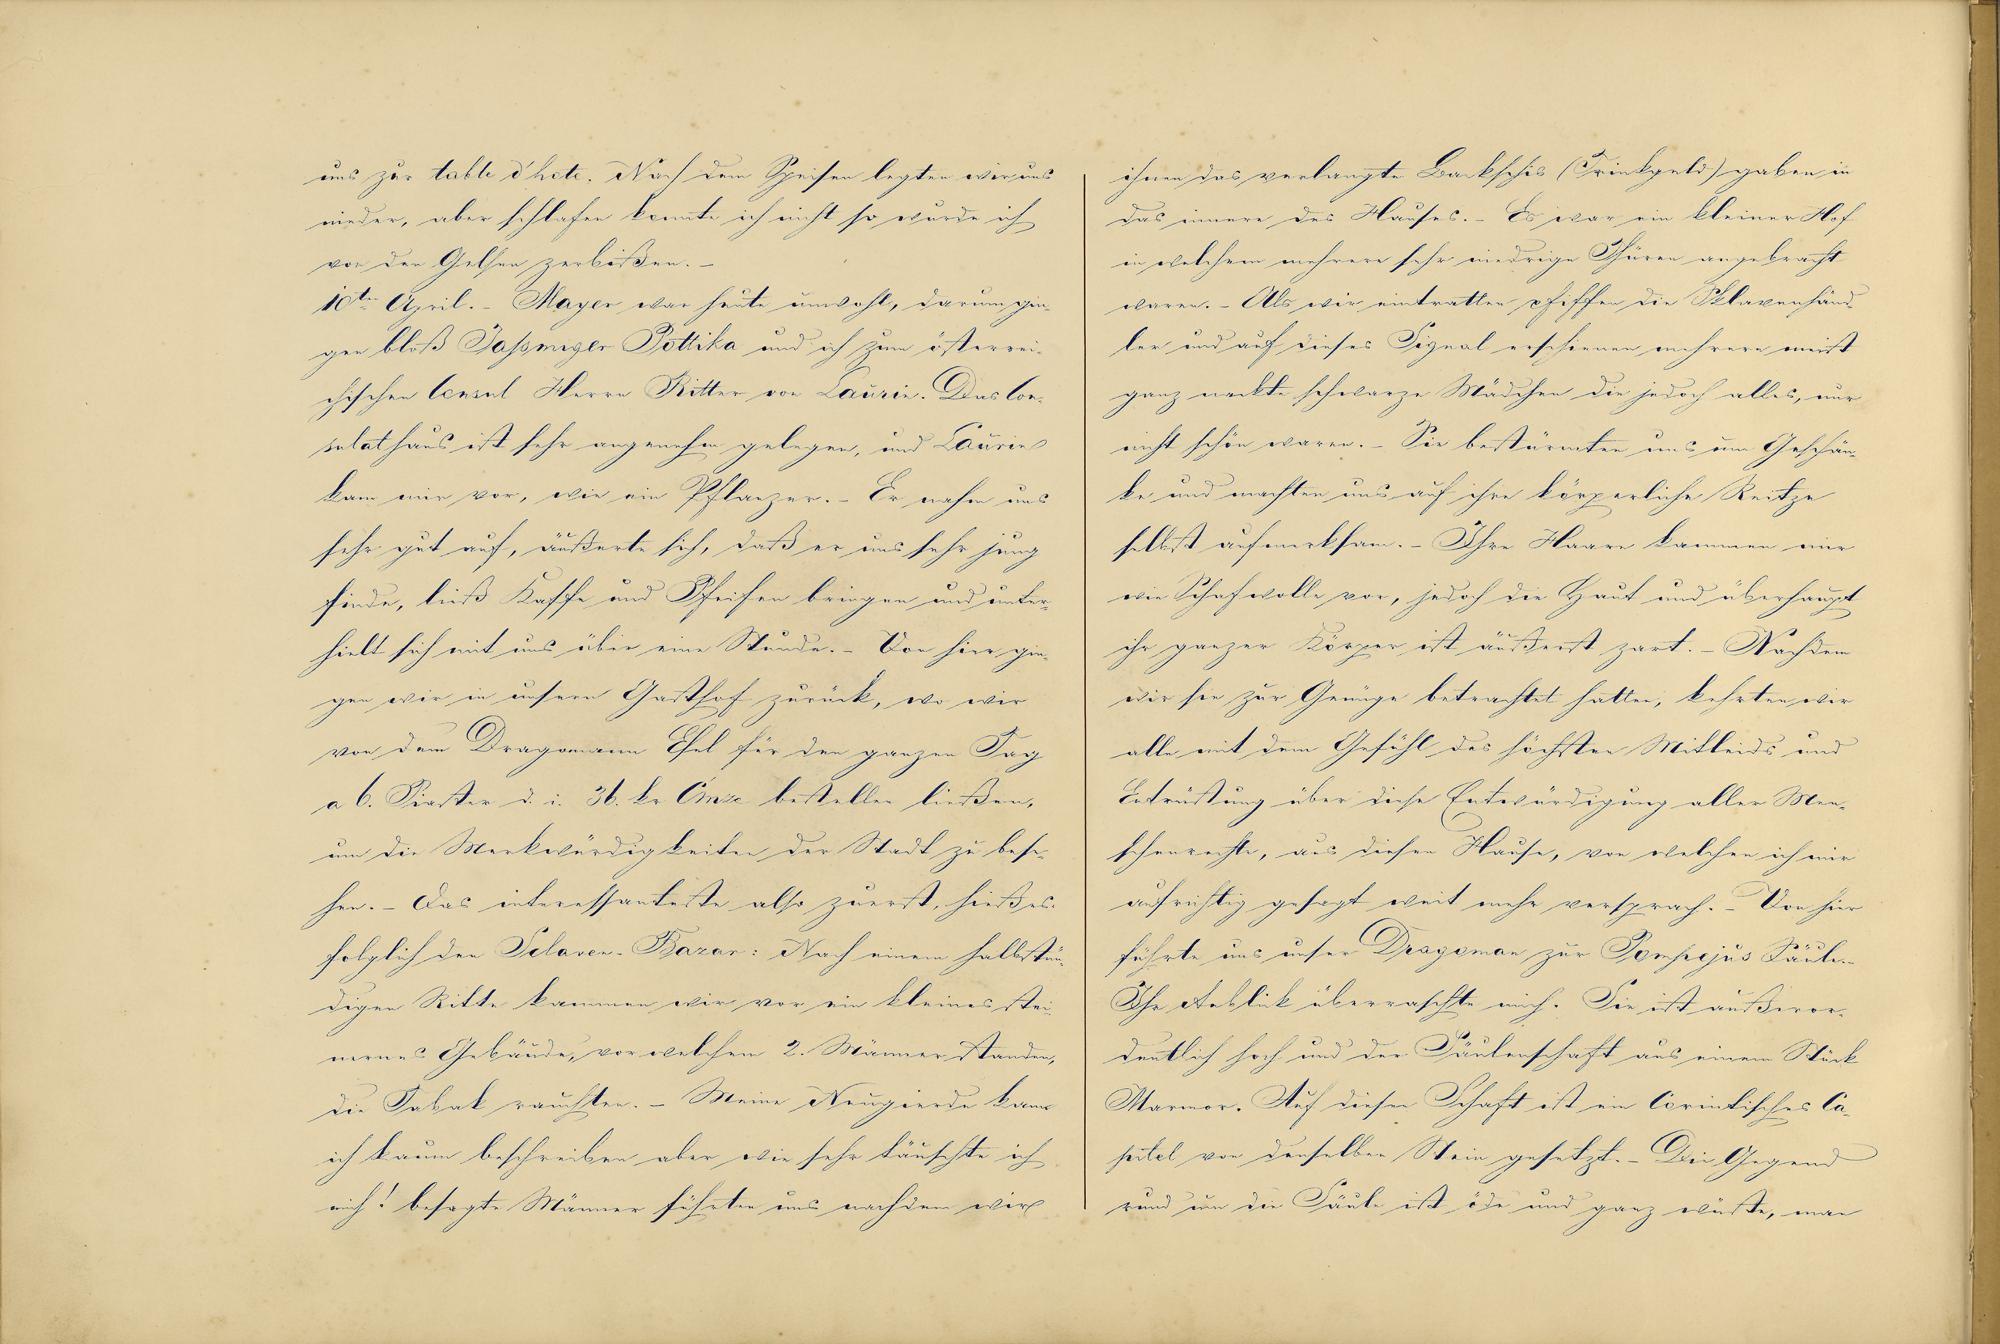 uns zur table d'hote. Nach dem Speisen legten wir uns
nieder, aber schlafen konnte ich nicht so wurde ich
von den Gelsen zerbißen. –
10ten April. – Mayer war heute unwohl, darum gin-
gen bloß Pottika und ich zum österrei-
chischen Consul Herrn Ritter von Laurin. Das Con-
sulathaus ist sehr angenehm gelegen, und Laurin
kam mir vor, wie ein Pflanzer. – Er nahm uns
sehr gut auf, äußerte sich, daß er uns sehr jung
finde, ließ Kaffe und Pfeifen bringen und unter-
hielt sich mit uns über eine Stunde. – Von hier gin-
gen wir in unsern Gasthof zurück, wo wir
von dem Dragomann Esel für den ganzen Tag
a 6. Piaster d. i. 36. kr bestellen ließen,
um die Merkwürdigkeiten der Stadt zu bese-
hen. – Das interessanteste also zuerst, hieß es.
folglich den Sclaven-Bazar: Nach einem halbstün-
digen Ritte kammen wir vor ein kleines stei-
nernes Gebäude, vor welchem 2. Männer standen,
die Tabak rauchten. – Meine Neugierde kann
ich kaum beschreiben aber wie sehr täuschte ich
mich! besagte Männer führten uns nachdem wir
ihnen das verlangte Backschis (Trinkgeld) gaben in
das innere des Hauses. – Es war ein kleiner Hof
in welchem mehrere sehr niedrige Thüren angebracht
waren. – Als wir eintratten pfiffen die Sklavenhänd-
ler und auf dieses Signal erschienen mehrere meist
ganz nackte schwarze Mädchen die jedoch alles, nur
nicht schön waren. – Sie bestürmten uns um Geschän-
ke und machten uns auf ihre körperliche Reitze
selbst aufmerksam. – Ihre Haare kammen mir
wie Schafwolle vor, jedoch die Haut und überhaupt
ihr ganzer Körper ist äußerst zart. – Nachdem
wir sie zur Genüge betrachtet hatten, kehrten wir
alle mit dem Gefühl des höchsten Mitleids und
Entrüstung über diese Entwürdigung aller Men-
schenrechte, aus diesen Hause, von welchen ich mir
aufrichtig gesagt weit mehr versprach. – Von hier
führte uns unser Dragoman zur Pompejus Säule. –
Ihr Anblick überraschte mich. Sie ist außeror-
dentlich hoch und der Säulenschaft aus einem Stück
Marmor. Auf diesen Schaft ist ein Corintisches Ca-
pitel von denselben Stein gesetzt. – Die Gegend
rund um die Säule ist öde und ganz wüste, man